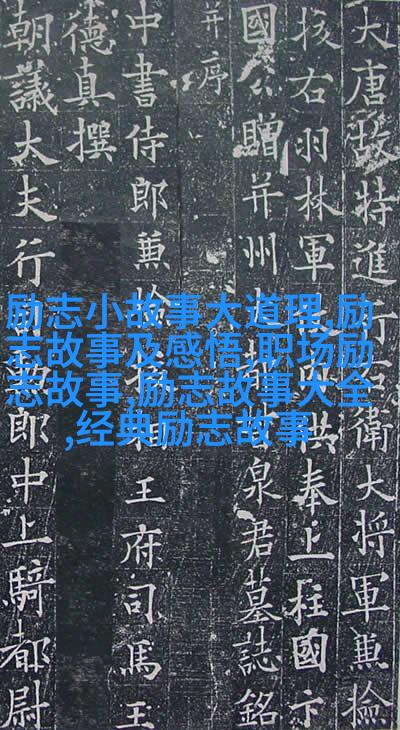 大唐故特進行右衛大將軍兼檢
挍右羽林軍供奉上柱國卞
國公贈并州大都督泉君墓誌銘
并序
中書侍郎兼檢挍相王府司馬王
德真撰
朝議大夫行司勳郎中上騎都尉
励志小故事大道理,励
志故事及感悟,职场励
志故事,励志故事大全
,经典励志故事